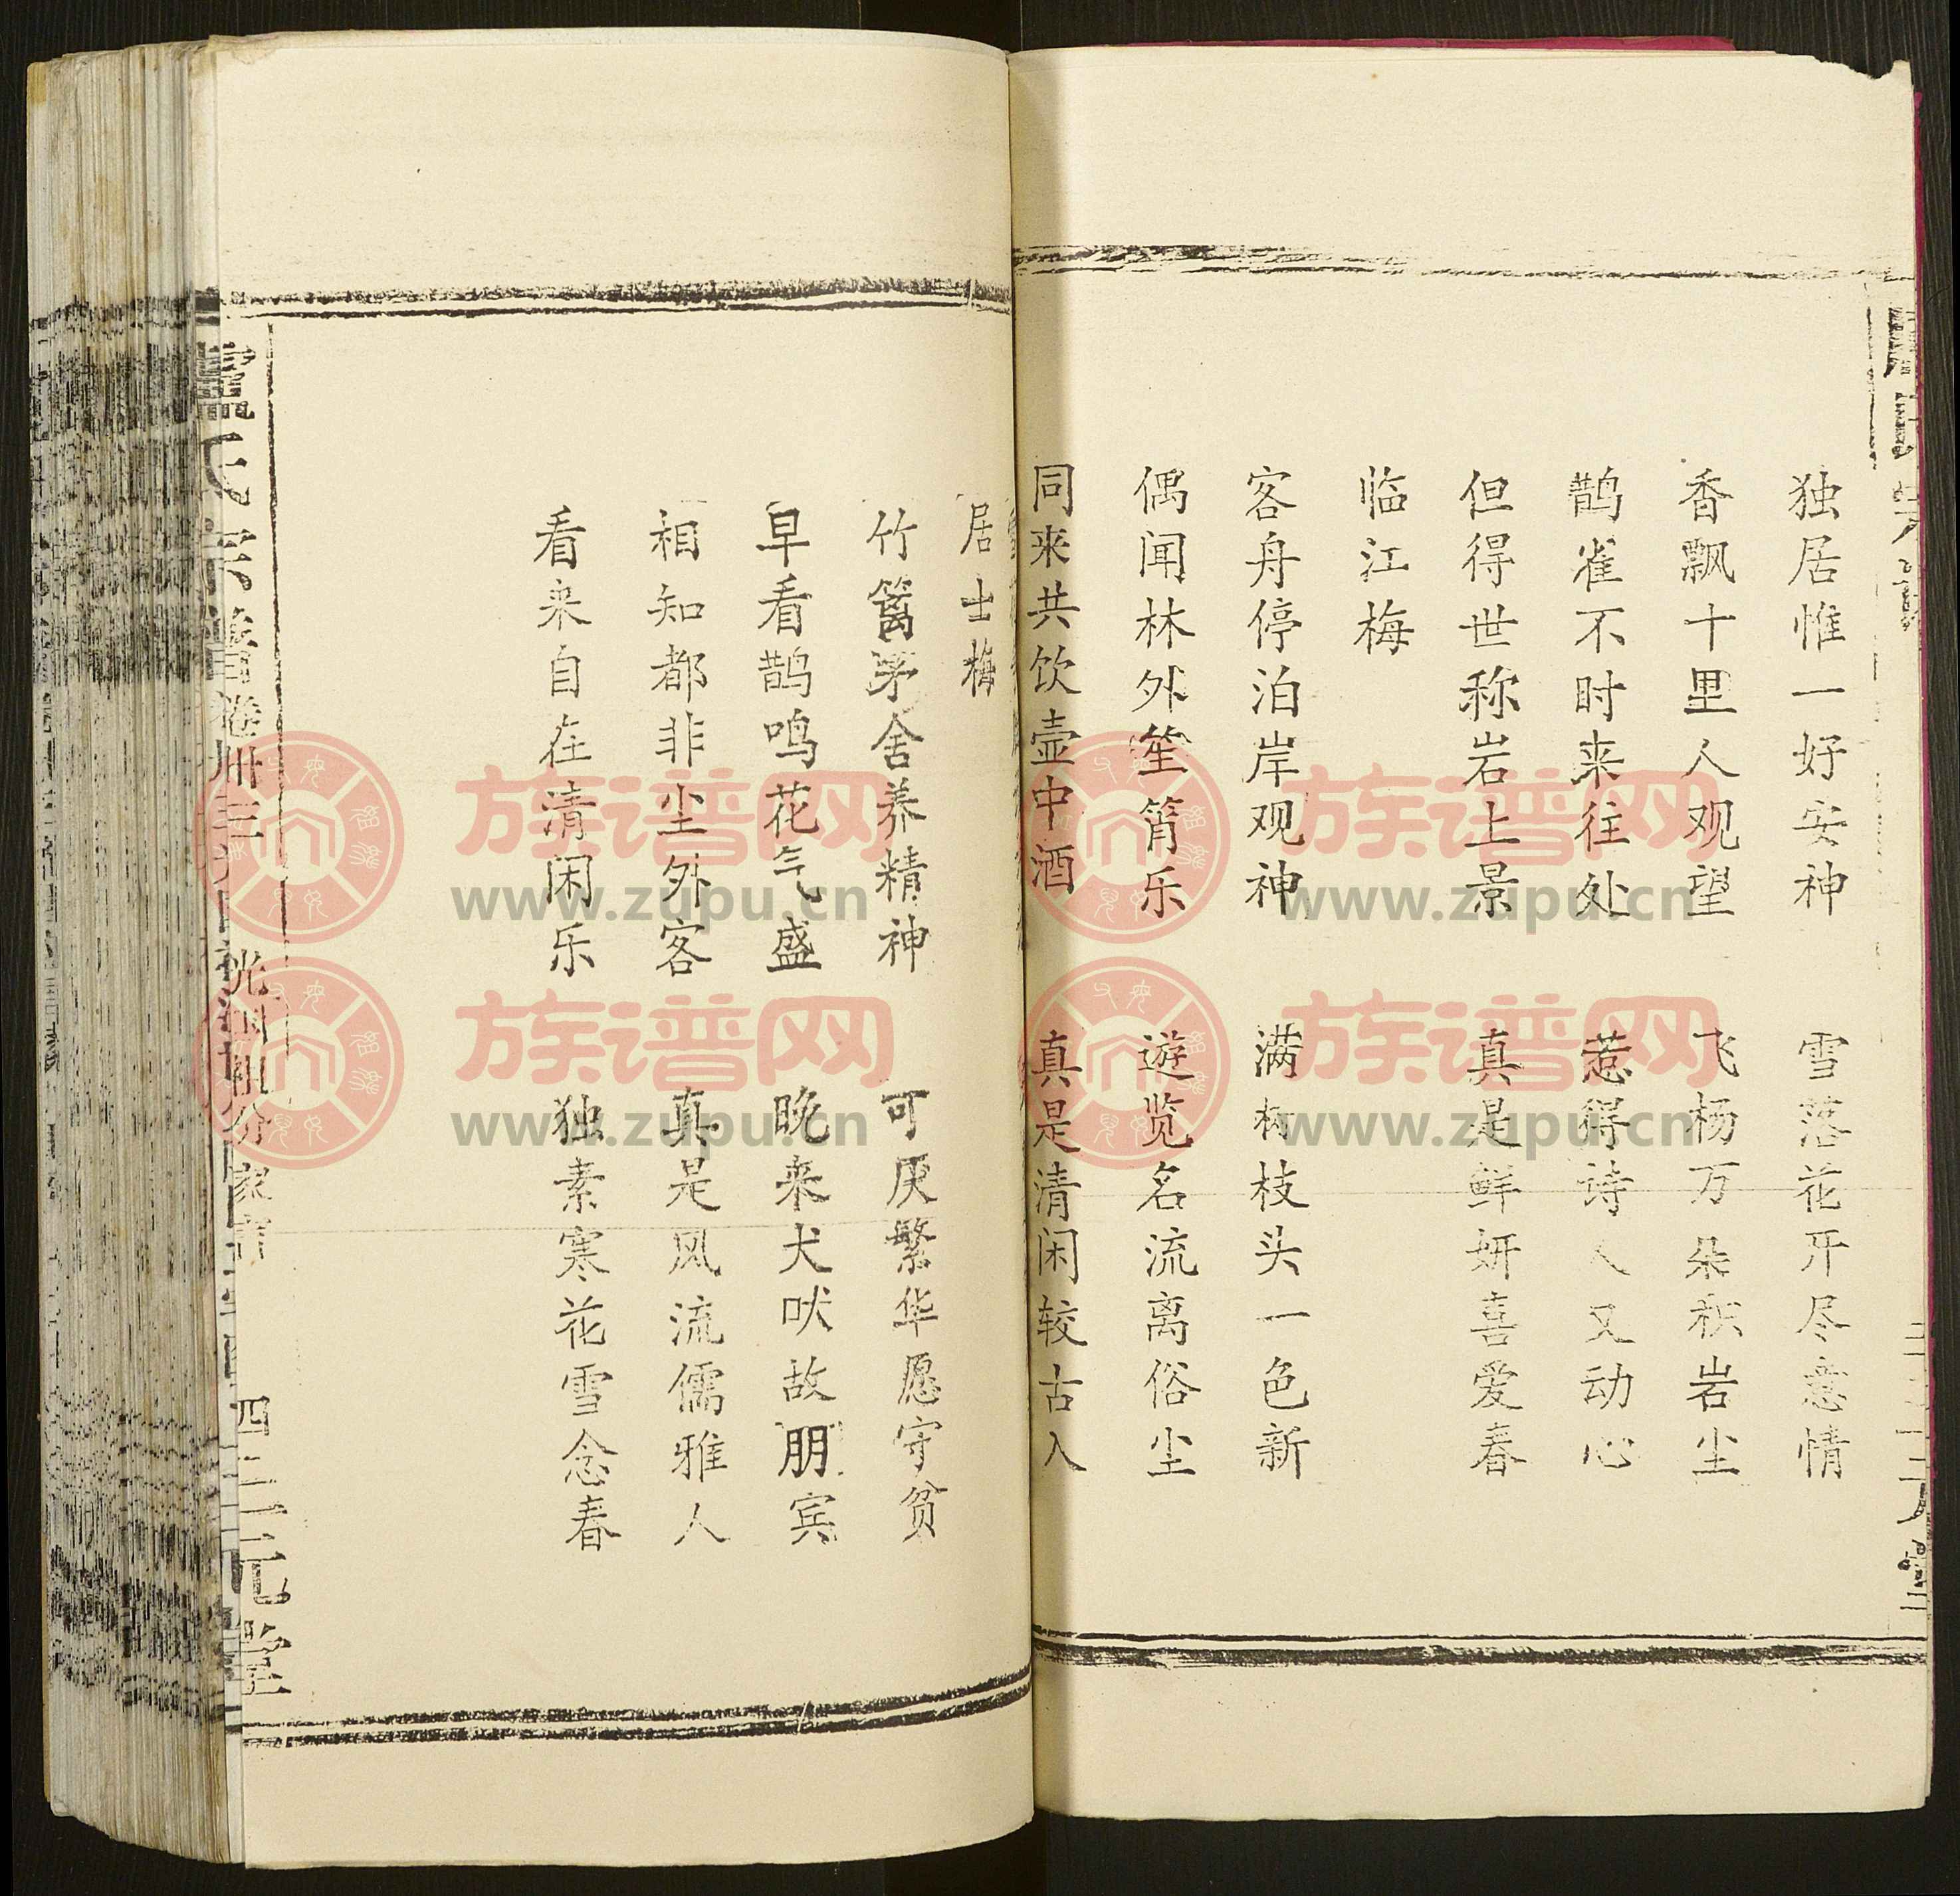 独居惟一好安神　雪落花开尽意情
香飘十里人观望　飞杨万朵积岩尘
鹊雀不时来往处　惹得诗人又动心
但得世称岩上景　真是鲜妍喜爱春
临江梅
客舟停泊岸观神　满树枝头一色新
偶闻林外笙箫乐　遊览名流离俗尘
同来共饮壶中酒　真是清闲较古人
居士梅
竹篱茅舍养精神　可厌繁华愿守贫
早看鹊鸣花气盛　晚来犬吠故朋宾
相知都非尘外客　真是风流儒雅人
看来自在清闲乐　独素寒花雪念春
氏宗谱 卷卅三 光国祖分 家言 四二 三元堂
族谱网
www.zupu.cn
族谱网
www.zupu.cn
族谱网
www.zupu.cn
族谱网
www.zupu.cn